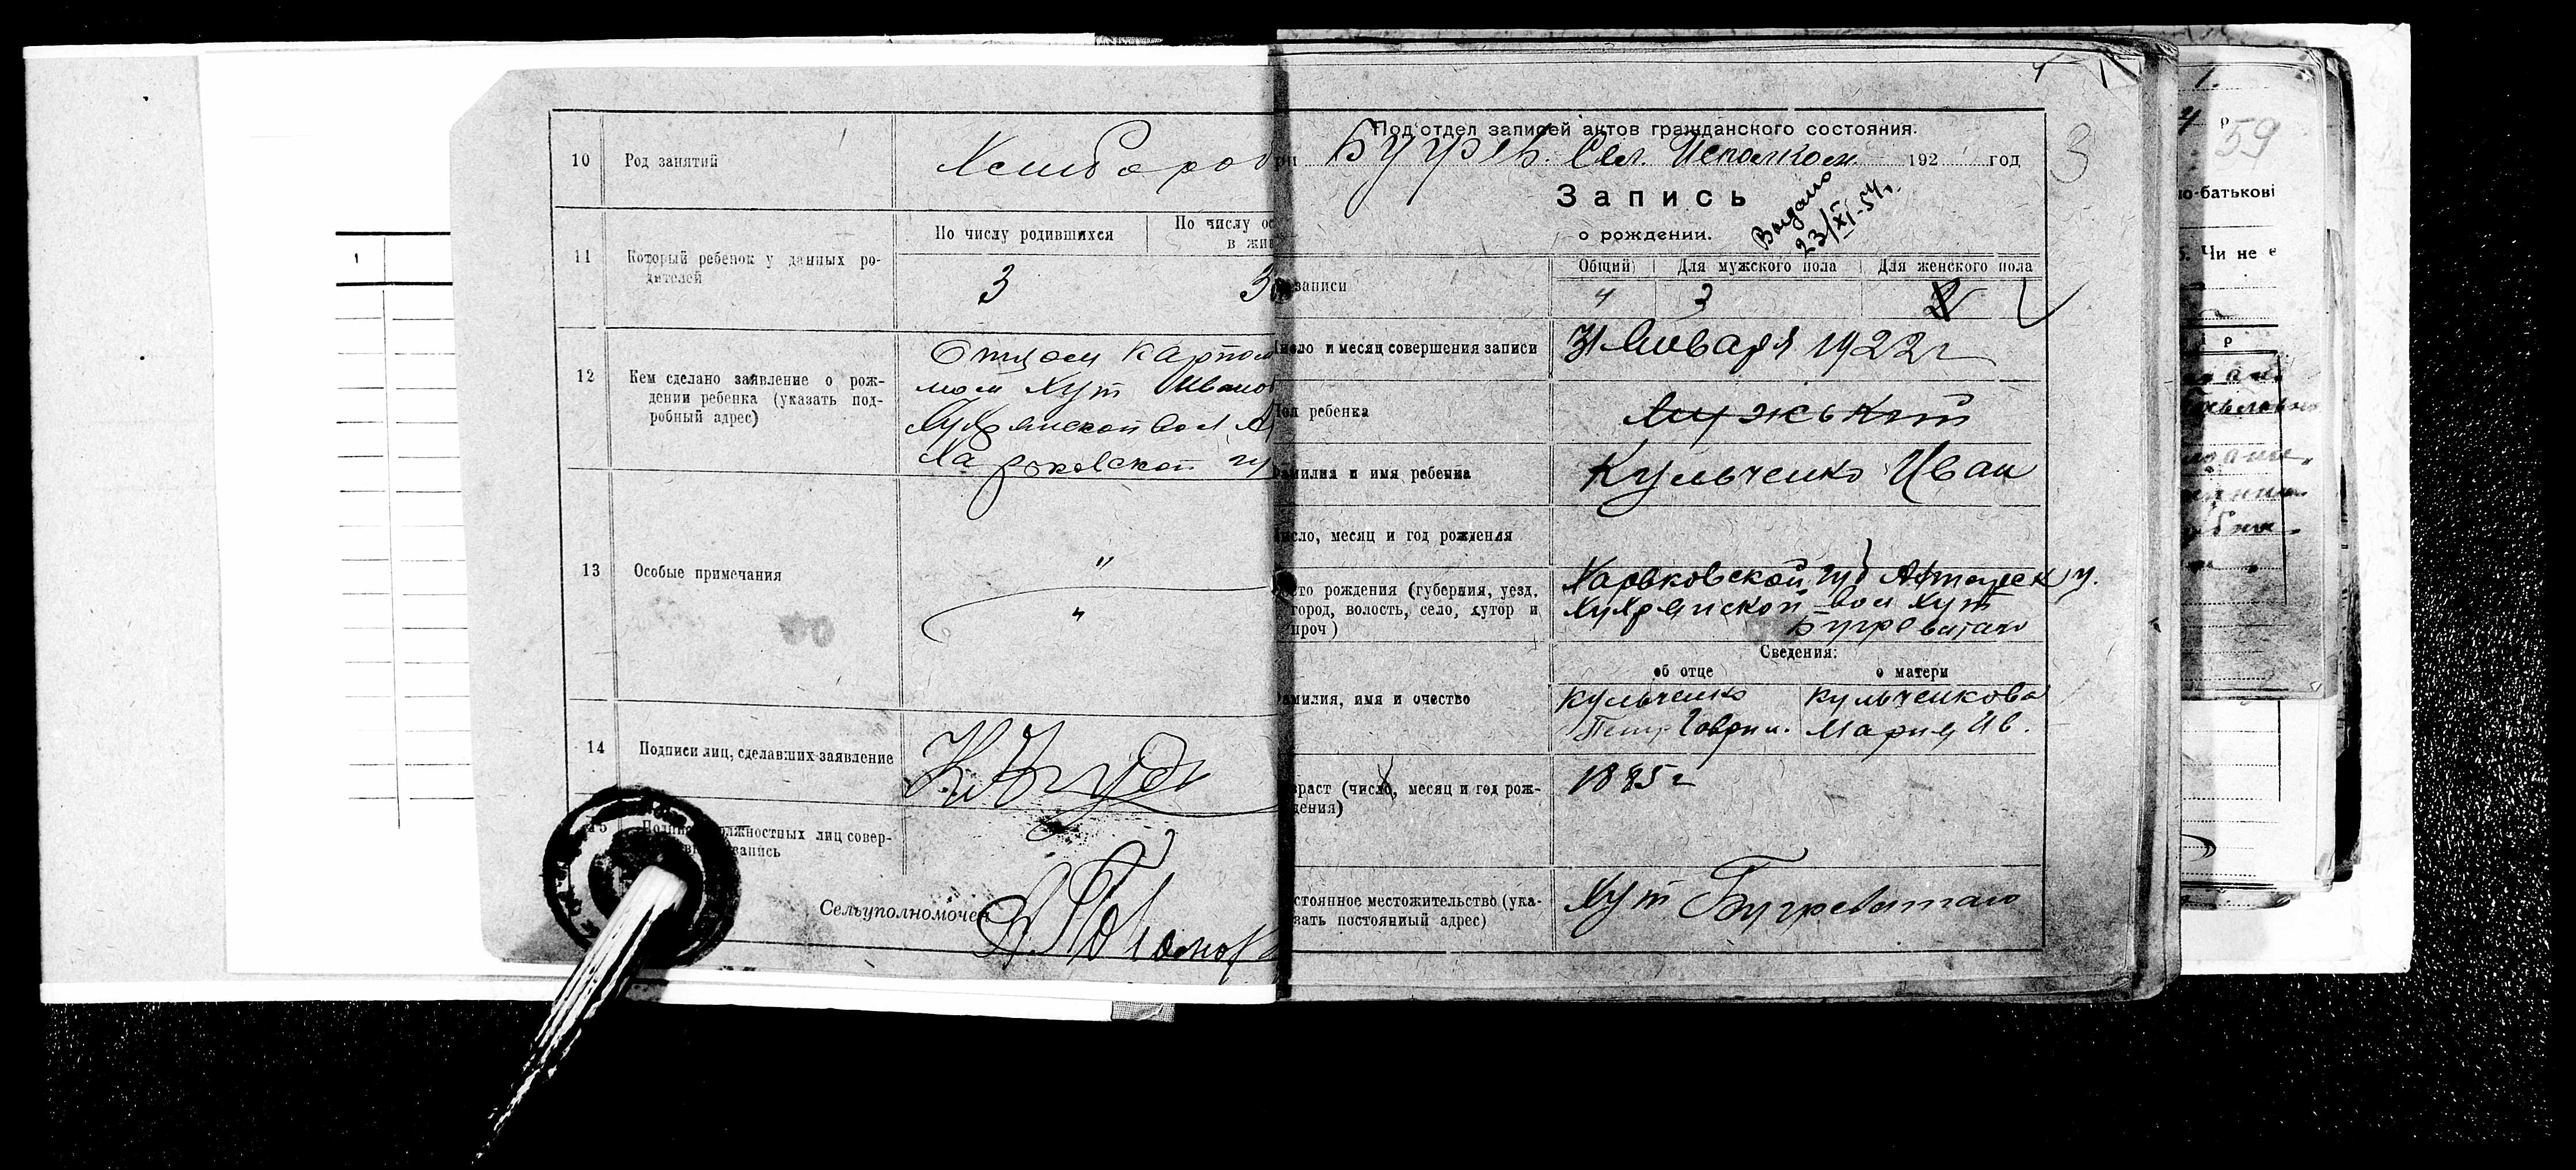 10 Род занятий
Хлебороб
11 Который ребенок у данных ро-
дителей
По числу родившихся
По числу ос
в жив
3 3
12 Кем сделано заявление о рож-
дении ребенка (указать под-
робный адрес)
Отцом Карпом
Хут Иванов
Хухрянской вол
Харьковской гу
13 Особые примечания
"
"
14 Подписи лиц, сделавших заявление
15
олжностных лиц совер-
запись
Сельуполномочен
Под'отдел записей актов гражданского состояния.
ри Бугрев. Сел. Исполком 192 год
Запись
о рождении.
Выдано
23/XI-54г.
записи
Общий Для мужского пола Для женского пола
4 3
исло и месяц совершения записи
31 Января 1922 г
Пол ребенка
Мужський
амилия и имя ребенка
Кульченко Иван
исло, месяц и год рождения
сто рождения (губерния, уезд,
город, волость, село, хутор и
проч)
Харьковской губ Ахтырск у.
Хухрянской вол Хут
Бугреватаго
Сведения:
об отце о матери
амилия, имя и очество
Кульченко Кульченкова
Петр Гаврил. Мария Ив.
зраст (число, месяц и год рож-
дения)
1885 г
стоянное местожительство (ука-
зать постоянный адрес)
Хут Бугреватаго
3
59
о-батькові
Чи не е
1